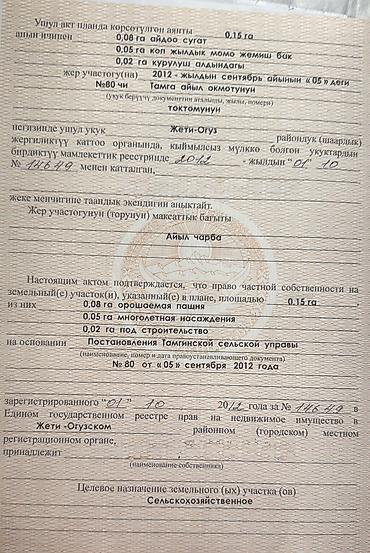 Ушул акт планда көрсөтүлгөн аянты 0,15 га
анын ичинен 0,08 га айдоо сугат
0,05 га коп жылдык момо жемиш бак
0,02 га курулуш алдындагы
жер участогу(на) 2012 - жылдын сентябрь айынын « 05 » деги
№80 чи Тамга айыл окмотунун
(укук берүүчү документтин аталышы, жылы, номери)
токтомунун
негизинде ушул укук Жети-Огуз райондук (шаардык)
жергиликтүү каттоо органында, кыймылсыз мүлккө болгон укуктардын
бирдиктүү мамлекеттик реестринде 2012 - жылдын "01" 10
№ 14649 менен катталган,
жеке менчигине таандык экендигин аныктайт.
Жер участогунун (торунун) максаттык багыты
Айыл чарба
Настоящим актом подтверждается, что право частной собственности на
земельный(е) участок(и), указанный(е) в плане, площадью 0,15 га
из них 0,08 га орошаемая пашня
0,05 га многолетная насаждения
0,02 га под строительство
на основании Постановления Тамгинской сельской управы
(наименование, номер и дата правоустанавливающего документа)
№ 80 от « 05 » сентября 2012 года
зарегистрированного "01" 10 2012 года за № 14649 в
Едином государственном реестре прав на недвижимое имущество в
Жети -Огузском районном (городском) местном
регистрационном органе,
принадлежит
(наименование собственника)
Целевое назначение земельного (ых) участка (ов)
Сельскохозяйственное